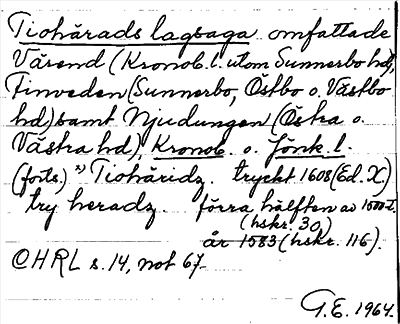 Tiohärads lagsaga omfattade
Värend (Kronob. l. utom Sunnerbo hd),
Finveden (Sunnerbo, Östbo o. Västbo
hd) samt Njudungen (Östra o.
Västra hd), Kronob. o. Jönk. l.
(forts.) Tiohäridz. tryckt 1608 (Ed. X)
try heradz. förra hälften av 1500-t.
(hskr. 30)
år 1583 (hskr. 116).
CHRL s. 14, not 67
G.E. 1964.